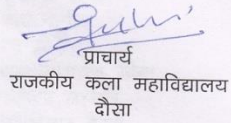 प्राचार्य
राजकीय कला महाविद्यालय
दौसा